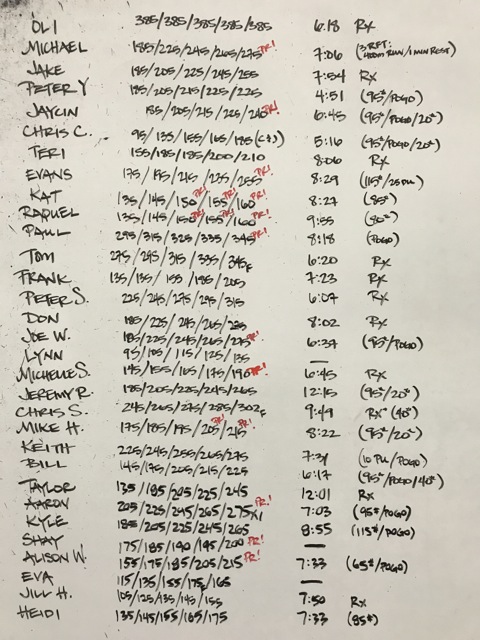 OLI 385/385/385/385/385 6:18 Rx
MICHAEL 185/225/245/265/275 PR! 7:06 (3 RFT: 400M RUN/1 MIN REST)
JAKE 185/205/225/245/255 7:54 Rx
PETER Y 185/205/215/225/225 4:51 (95#/POGO)
JAYCIN 185/205/215/225/240 PR! 6:45 (95#/POGO/20")
CHRIS C. 95/135/155/165/185 (C&J) 5:16 (95#/POGO/20")
TERI 155/185/185/200/210 8:06 Rx
EVANS 175/195/215/225/255 PR! 8:29 (115#/25 PU)
KAT 135/145/150 PR!/155 PR!/160 PR! 8:27 (85#)
RAQUEL 135/145/150 PR!/155 PR!/160 PR! 9:55 (80#)
PAUL 295/315/325/335/345 PR! 8:18 (POGO)
TOM 275/295/315/335/345 6:20 Rx
FRANK 135/135/155/195/205 7:23 Rx
PETER S. 225/245/275/295/315 6:07 Rx
DON 185/225/245/265/285 8:02 Rx
JOE W. 185/225/245/265/275 PR! 6:37 (95#/POGO)
LYNN 95/105/115/125/135 —
MICHELLE S. 145/155/165/175/190 PR! 6:45 Rx
JEREMY R. 185/205/225/245/265 12:15 (95#/20")
CHRIS S. 245/265/275/285/302 9:49 Rx+ (40#)
MIKE H. 175/185/195/205 PR!/215 PR! 8:22 (95#/20")
KEITH 225/245/255/265/275 7:31 (10 PU/POGO)
BILL 145/175/205/215/225 6:17 (95#/POGO/40#)
TAYLOR 135/185/205/225/245 12:01 Rx
AARON 205/225/245/265/275x1 PR! 7:03 (95#/POGO)
KYLE 185/205/225/245/265 8:55 (115#/POGO)
SHAY 175/185/190/195/200 PR! —
ALISON W. 155/175/195/205/215 PR! 7:33 (65#/POGO)
EVA 115/135/155/175/165 —
JILL H. 105/125/135/145/155 7:50 Rx
HEIDI 135/145/155/165/175 7:33 (85#)